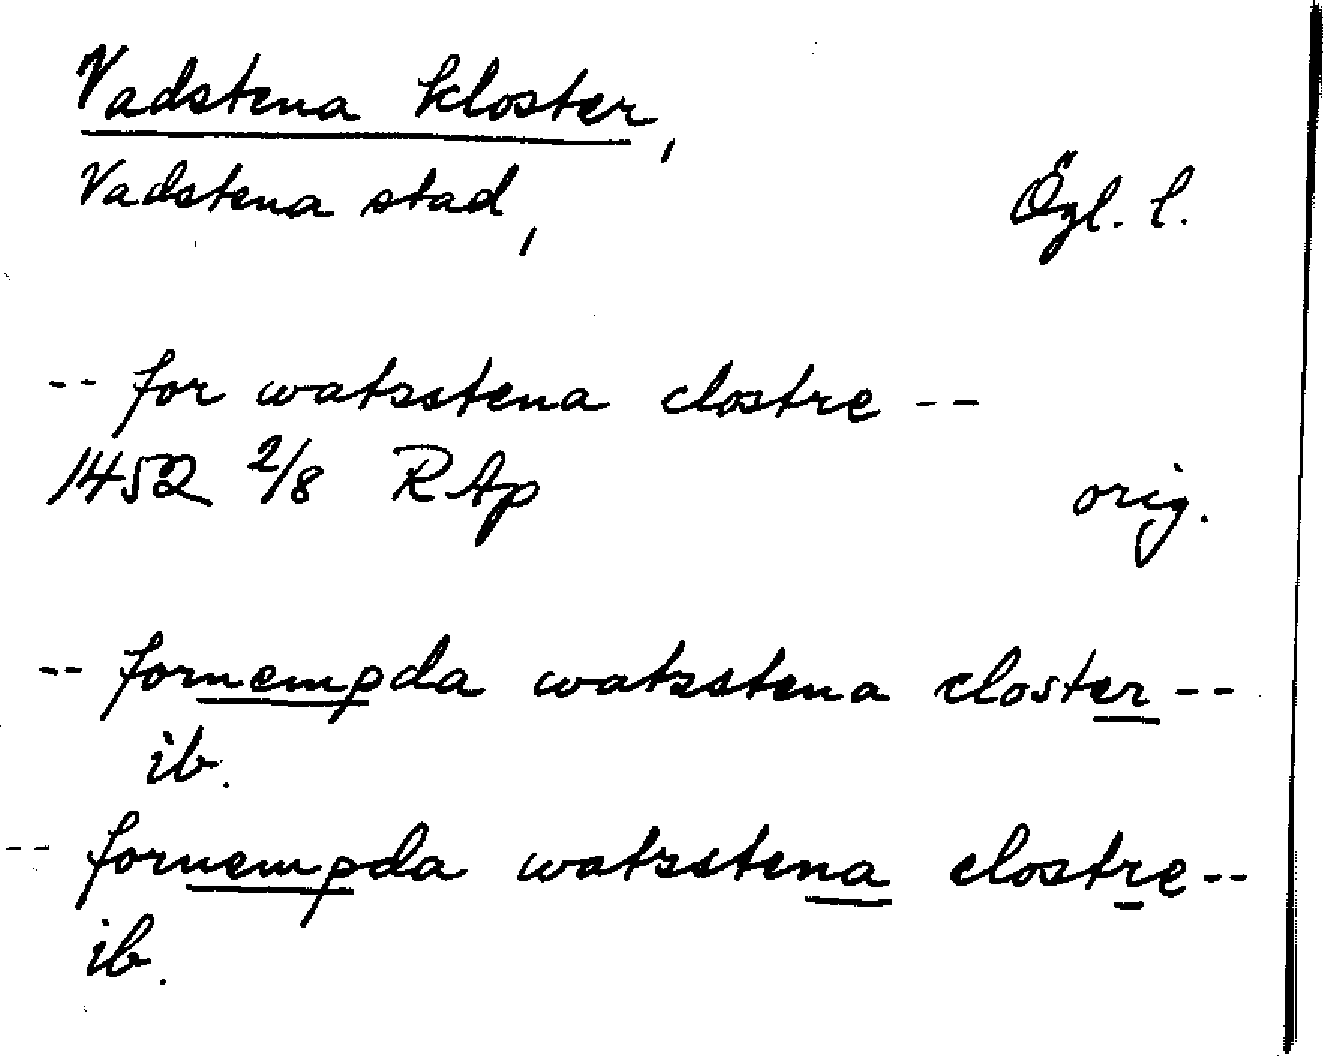 Vadstena kloster,
Vadstena stad, Ögl. l.
-- for watzstena clostre --
1452 2/8 RAp orig.
-- fornempda watzstena closter --
ib.
-- fornempda watzstena clostre --
ib.